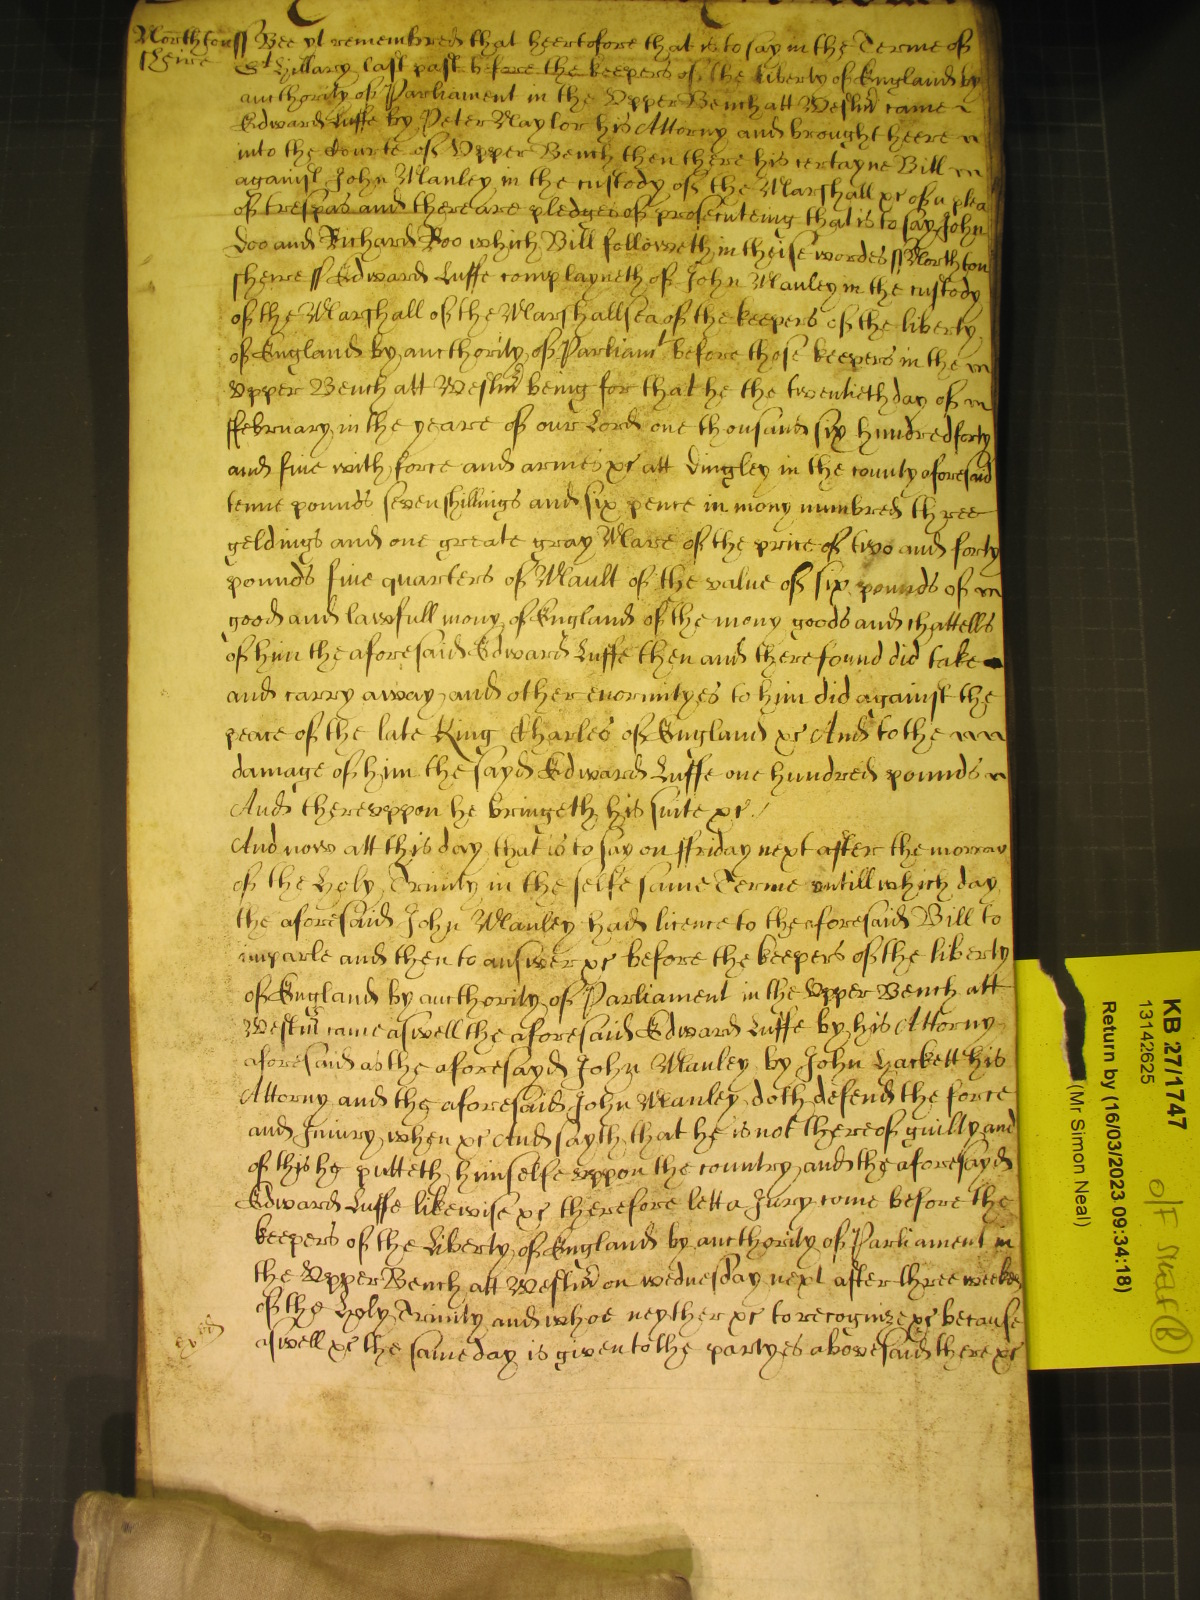 Northton ss Bee yt remembred that heertofore that is to say in the Terme of
sheire St Hillary last past before the keepers of the liberty of England by
aucthority of Parliament in the Upper Bench att Westm̃ came
Edward Luffe by Peter Naylor his Attorny and brought heere
into the Courte of Upper Bench then there his certayne Bill
against John Manley in the custody of the Marshall xc of a plea
of trespas and there are pledges of prosecuteing that is to say John
Doo and Richard Roo which Bill followeth in theise wordes ss Northton
sheire ss Edward Luffe complayneth of John Manley in the custody
of the Marshall of the Marshallsea of the keepers of the liberty
of England by aucthority of Parliamt before those keepers in the
Upper Bench att Westm̃ being for that he the twentieth day of
ffebruary in the yeare of our Lord one thousand six hundred forty
and five with force and armes xc att Dingley in the county aforesaid
tenne pounds seven shillings and six pence in mony numbred three
geldings and one greate gray Mare of the price of two and forty
pounds five quarters of Mault of the value of six pounds of
good and lawfull mony of England of the mony goods and chattells
of him the aforesaid Edward Luffe then and there found did take
and carry away and other enormityes to him did against the
peace of the late King Charles of England xc And to the
damage of him the sayd Edward Luffe one hundred pounds
And thereuppon he bringeth his suite xc
And now att this day that is to say on ffriday next after the morrow
of the Holy Trinity in the selfe same Terme untill which day
the aforesaid John Manley had licence to the aforesaid Bill to
imparle and then to answer xc before the keepers of the liberty
of England by aucthority of Parliament in the Upper Bench att
Westm̃ came aswell the aforesaid Edward Luffe by his Attorny
aforesaid as the aforesayd John Manley by John Hackett his
Attorny and the aforesaid John Manley doth defend the force
and Injury when xc And sayth that he is not thereof guilty and
of this he putteth himselfe uppon the country and the aforesayd
Edward Luffe likewise xc therefore lett a Jury come before the
keepers of the Liberty of England by aucthority of Parliament in
the Upper Bench att Westm̃ on wednesday next after three weekes
of the Holy Trinity and whoe neyther xc to recognize xc because
aswell xc the same day is given to the partyes abovesaid there xc
KB 27/1747
13142625
Return by (16/03/2023 09:34:18)
(Mr Simon Neal)